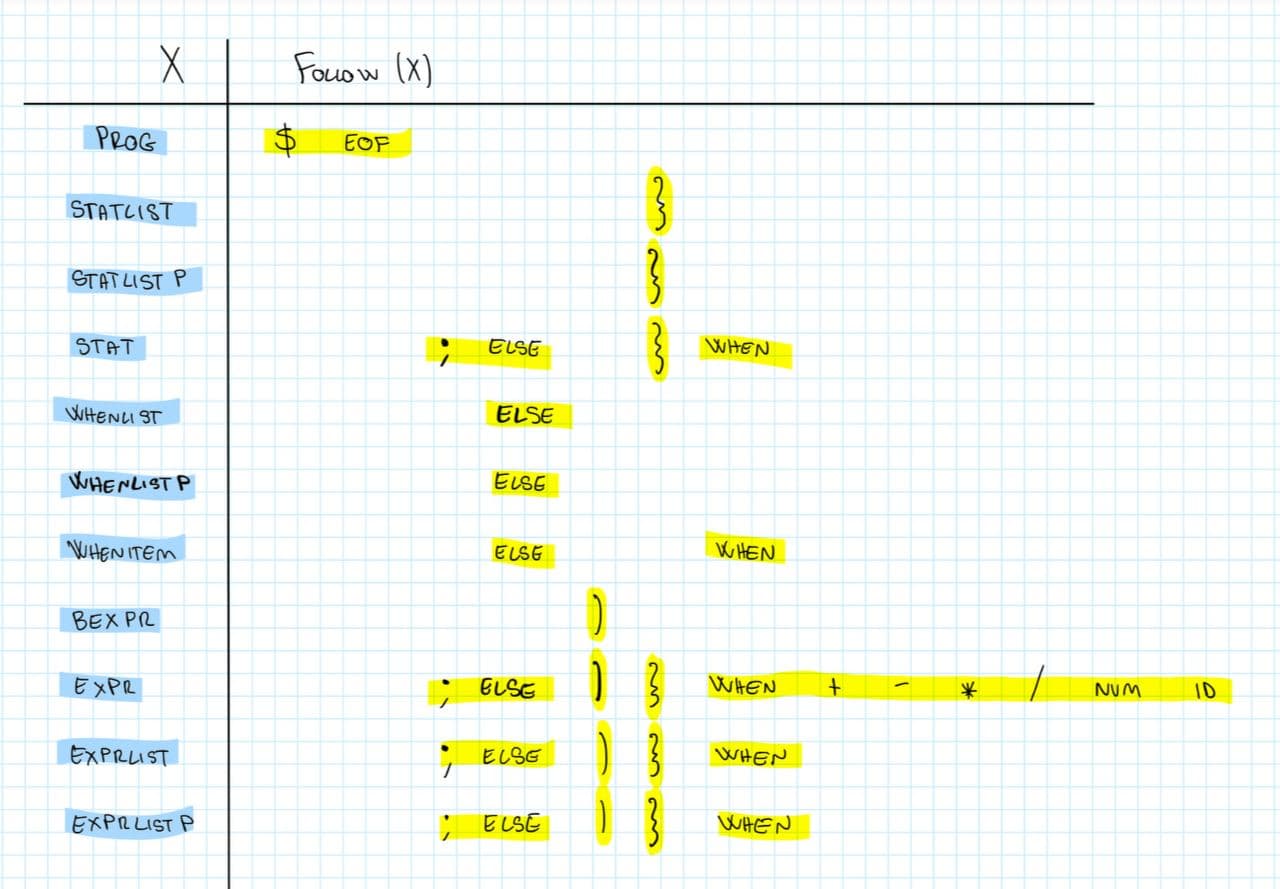 X Follow (X)
PROG $ EOF
STATLIST }
STATLIST P }
STAT ; ELSE } WHEN
WHENLIST ELSE
WHENLIST P ELSE
WHENITEM ELSE WHEN
BEXPR )
EXPR ; ELSE ) } WHEN + - * / NUM ID
EXPRLIST ; ELSE ) } WHEN
EXPRLIST P ; ELSE ) } WHEN